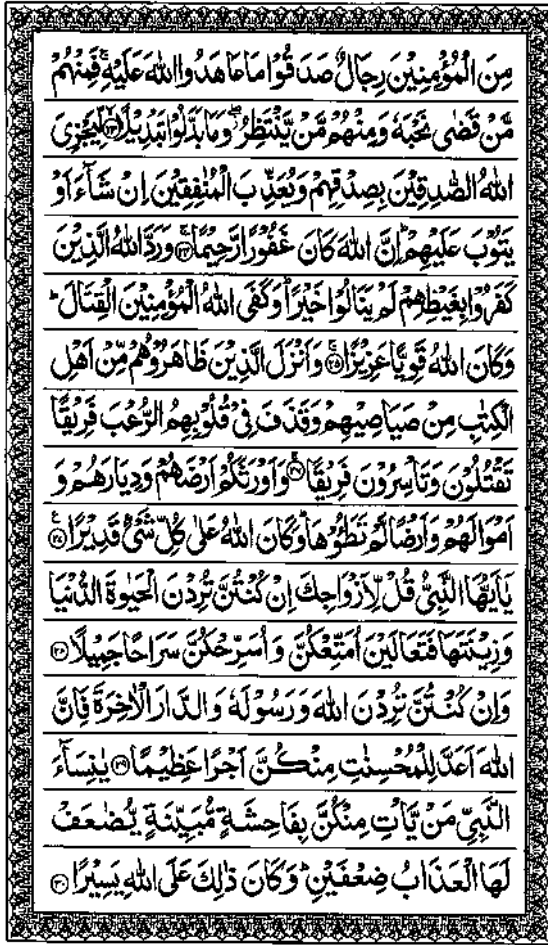 مِنَ الْمُؤْمِنِيْنَ رِجَالٌ صَدَقُوْا مَا عَاهَدُوا اللّٰهَ عَلَيْهِ ۚ فَمِنْهُمْ
مَّنْ قَضٰى نَحْبَهٗ وَمِنْهُمْ مَّنْ يَّنْتَظِرُ ۖ وَمَا بَدَّلُوْا تَبْدِيْلًا ﴿٢٣﴾ لِّيَجْزِىَ
اللّٰهُ الصّٰدِقِيْنَ بِصِدْقِهِمْ وَيُعَذِّبَ الْمُنٰفِقِيْنَ اِنْ شَآءَ اَوْ
يَتُوْبَ عَلَيْهِمْ ؕ اِنَّ اللّٰهَ كَانَ غَفُوْرًا رَّحِيْمًا ﴿٢٤﴾ وَرَدَّ اللّٰهُ الَّذِيْنَ
كَفَرُوْا بِغَيْظِهِمْ لَمْ يَنَالُوْا خَيْرًا ؕ وَكَفَى اللّٰهُ الْمُؤْمِنِيْنَ الْقِتَالَ ؕ
وَكَانَ اللّٰهُ قَوِيًّا عَزِيْزًا ﴿٢٥﴾ وَاَنْزَلَ الَّذِيْنَ ظَاهَرُوْهُمْ مِّنْ اَهْلِ
الْكِتٰبِ مِنْ صَيَاصِيْهِمْ وَقَذَفَ فِىْ قُلُوْبِهِمُ الرُّعْبَ فَرِيْقًا
تَقْتُلُوْنَ وَتَاْسِرُوْنَ فَرِيْقًا ﴿٢٦﴾ وَاَوْرَثَكُمْ اَرْضَهُمْ وَدِيَارَهُمْ وَ
اَمْوَالَهُمْ وَاَرْضًا لَّمْ تَطَـُٔوْهَا ؕ وَكَانَ اللّٰهُ عَلٰى كُلِّ شَىْءٍ قَدِيْرًا ﴿٢٧﴾
يٰۤاَيُّهَا النَّبِىُّ قُلْ لِّاَزْوَاجِكَ اِنْ كُنْتُنَّ تُرِدْنَ الْحَيٰوةَ الدُّنْيَا
وَزِيْنَتَهَا فَتَعَالَيْنَ اُمَتِّعْكُنَّ وَاُسَرِّحْكُنَّ سَرَاحًا جَمِيْلًا ﴿٢٨﴾
وَاِنْ كُنْتُنَّ تُرِدْنَ اللّٰهَ وَرَسُوْلَهٗ وَالدَّارَ الْاٰخِرَةَ فَاِنَّ
اللّٰهَ اَعَدَّ لِلْمُحْسِنٰتِ مِنْكُنَّ اَجْرًا عَظِيْمًا ﴿٢٩﴾ يٰنِسَآءَ
النَّبِىِّ مَنْ يَّاْتِ مِنْكُنَّ بِفَاحِشَةٍ مُّبَيِّنَةٍ يُّضٰعَفْ
لَهَا الْعَذَابُ ضِعْفَيْنِ ؕ وَكَانَ ذٰلِكَ عَلَى اللّٰهِ يَسِيْرًا ﴿٣٠﴾